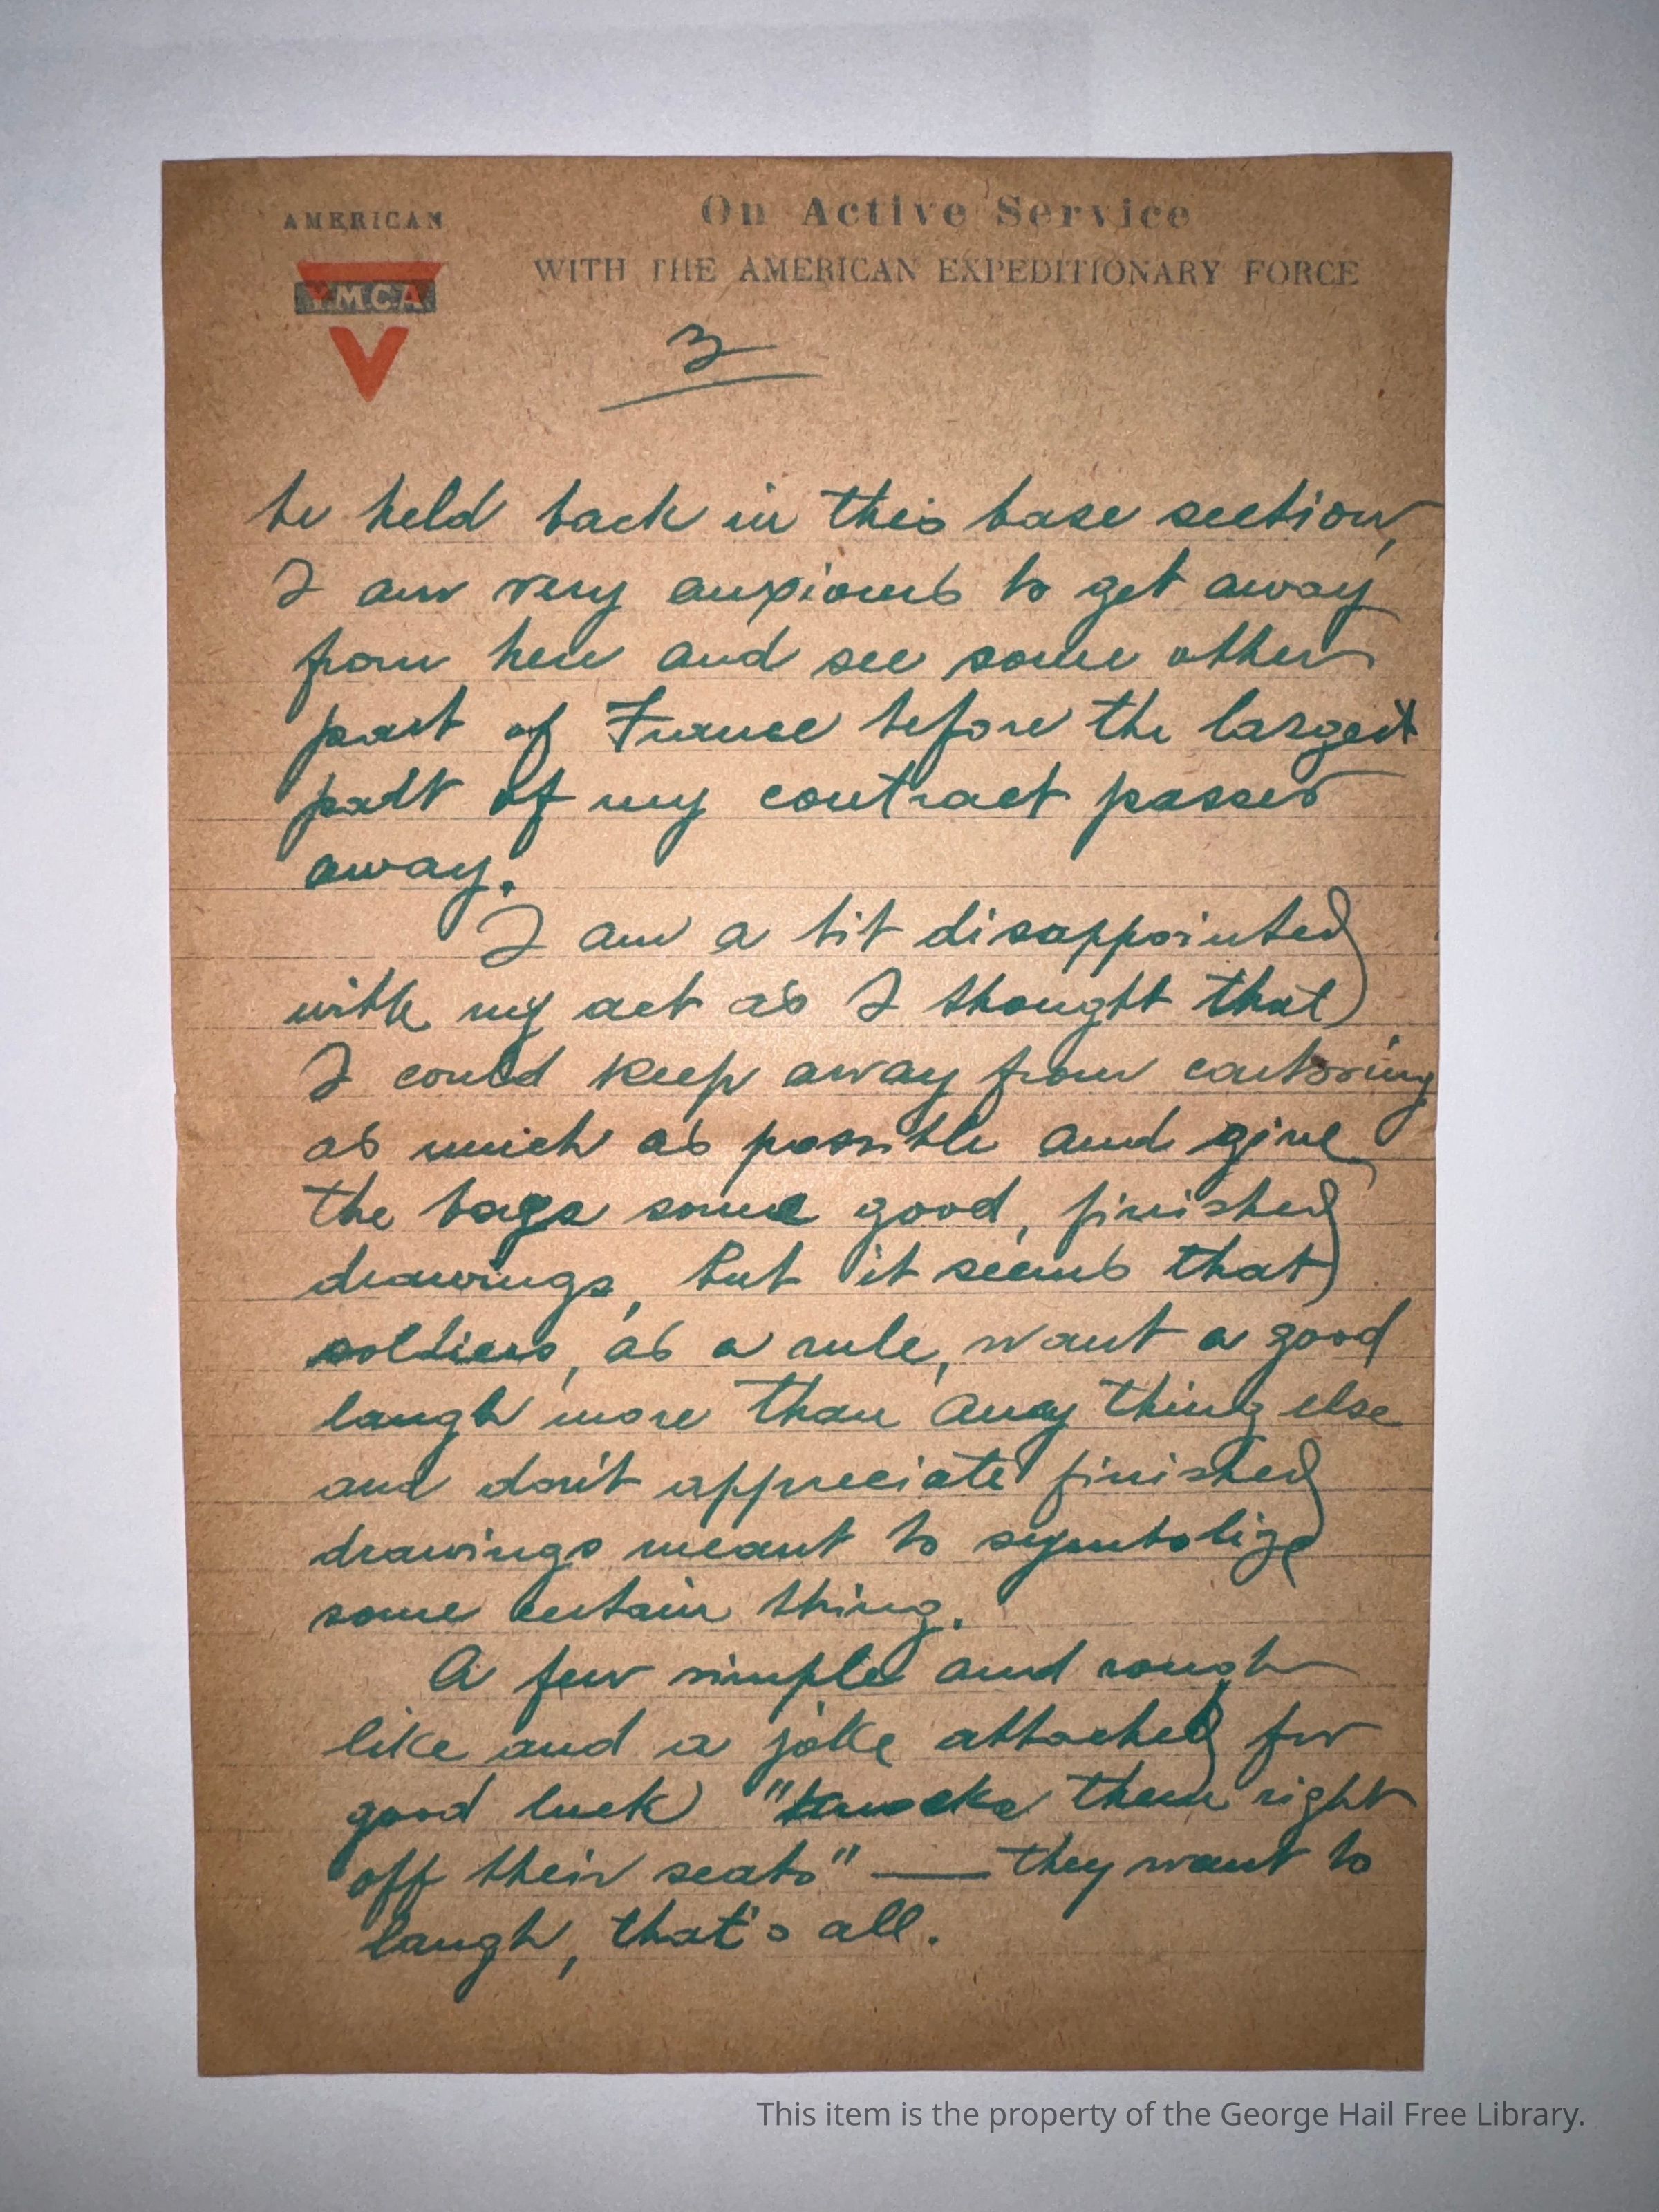 AMERICAN
Y.M.C.A.
On Active Service
WITH THE AMERICAN EXPEDITIONARY FORCE
3
be held back in this base section,
I am very anxious to get away
from here and see some other
part of France before the largest
part of my contract passes
away.
I am a bit disappointed
with my act as I thought that
I could keep away from cartooning
as much as possible and give
the boys some good, finished
drawings, but it seems that
soldiers, as a rule, want a good
laugh more than any thing else
and don't appreciate finished
drawings meant to symbolize
some certain thing.
A few simple and rough
like and a joke attached for
good luck "knocks them right
off their seats" — they want to
laugh, that's all.
This item is the property of the George Hail Free Library.